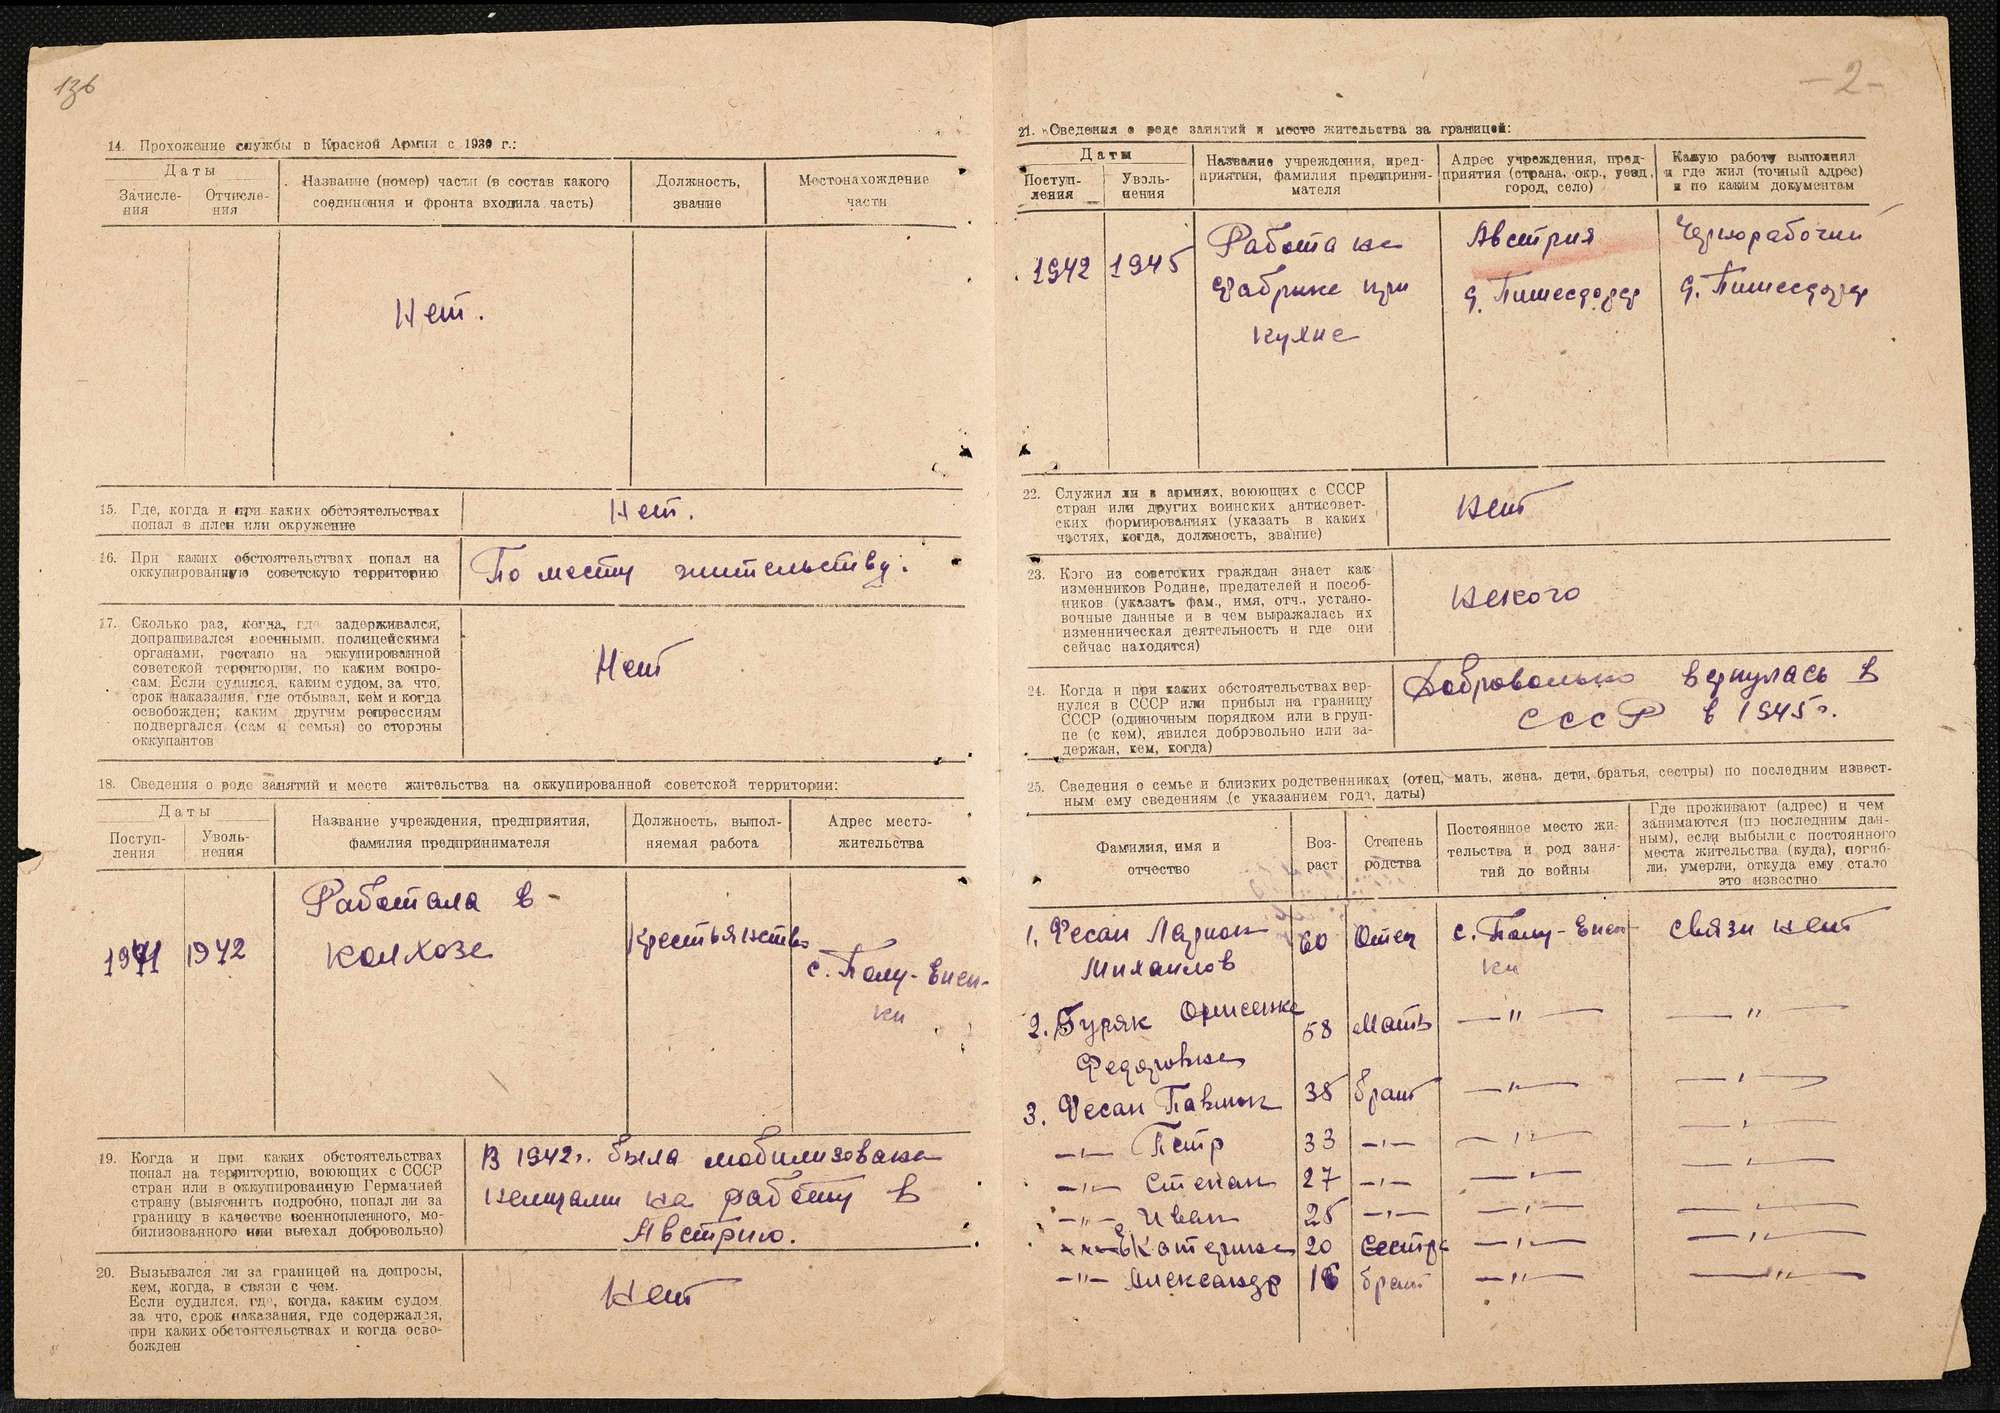 136
14. Прохожение службы в Красной Армии с 1939 г.:
Даты
Зачисле-
ния
Отчисле-
ния
Название (номер) части (в состав какого
соединения и фронта входила часть)
Должность,
звание
Местонахождение
части
Нет.
15. Где, когда и при каких обстоятельствах
попал в плен или окружение
Нет.
16. При каких обстоятельствах попал на
оккупированную советскую территорию
По месту жительству.
17. Сколько раз, когда, где задерживался,
допрашивался военными, полицейскими
органами, гестапо на оккупированной
советской территории, по каким вопро-
сам. Если судился, каким судом, за что,
срок наказания, где отбывал, кем и когда
освобожден; каким другим репрессиям
подвергался (сам и семья) со стороны
оккупантов
Нет
18. Сведения о роде занятий и месте жительства на оккупированной советской территории:
Даты
Поступ-
ления
Уволь-
нения
Название учреждения, предприятия,
фамилия предпринимателя
Должность, выпол-
няемая работа
Адрес место-
жительства
1941
1942
Работала в
колхозе
Крестьянство
с. Полу-Енен-
ки
19. Когда и при каких обстоятельствах
попал на территорию, воюющих с СССР
стран или в оккупированную Германией
страну (выяснить подробно, попал ли за
границу в качестве военнопленного, мо-
билизованного или выехал добровольно)
В 1942г. была мобилизована
немцами на работу в
Австрию.
20. Вызывался ли за границей на допросы,
кем, когда, в связи с чем.
Если судился, где, когда, каким судом
за что, срок наказания, где содержался,
при каких обстоятельствах и когда осво-
божден
Нет
-2-
21. Сведения о роде занятий и месте жительства за границей:
Даты
Поступ-
ления
Уволь-
нения
Название учреждения, пред-
приятия, фамилия предприни-
мателя
Адрес учреждения, пред-
приятия (страна, окр., уезд,
город, село)
Какую работу выполнял
и где жил (точный адрес)
и по каким документам
1942
1945
Работа на
фабрике при
кухне
Австрия
д. Пишесдорф
Чернорабочий
д. Пишесдорф
22. Служил ли в армиях, воюющих с СССР
стран или других воинских антисовет-
ских формированиях (указать в каких
частях, когда, должность, звание)
Нет
23. Кого из советских граждан знает как
изменников Родине, предателей и пособ-
ников (указать фам., имя, отч., устано-
вочные данные и в чем выражалась их
изменническая деятельность и где они
сейчас находятся)
Некого
24. Когда и при каких обстоятельствах вер-
нулся в СССР или прибыл на границу
СССР (одиночным порядком или в груп-
пе (с кем), явился добровольно или за-
держан, кем, когда)
Добровольно вернулась в
СССР в 1945г.
25. Сведения о семье и близких родственниках (отец, мать, жена, дети, братья, сестры) по последним извест-
ным ему сведениям (с указанием года, даты)
Фамилия, имя и
отчество
Воз-
раст
Степень
родства
Постоянное место жи-
тельства и род заня-
тий до войны
Где проживают (адрес) и чем
занимаются (по последним дан-
ным), если выбыли с постоянного
места жительства (куда), погиб-
ли, умерли, откуда ему стало
это известно
1. Фесан Ларион
Михайлов
60
Отец
с. Полу-Енен-
ки
связи нет
2. Буряк
Федоровна
58
Мать
—"—
—"—
3. Фесан Павлюк
35
брат
—"—
—"—
—"— Петр
33
—"—
—"—
—"—
—"— Степан
27
—"—
—"—
—"—
—"— Иван
25
—"—
—"—
—"—
Катерина
20
Сестра
—"—
—"—
—"— Александр
16
брат
—"—
—"—